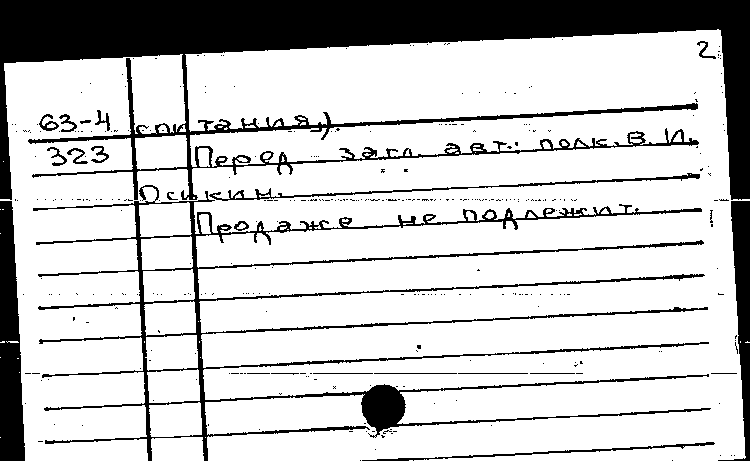 2
63-4 спитания,).
323 Перед загл. авт.: полк. В. И.
Оськин.
Продаже не подлежит.